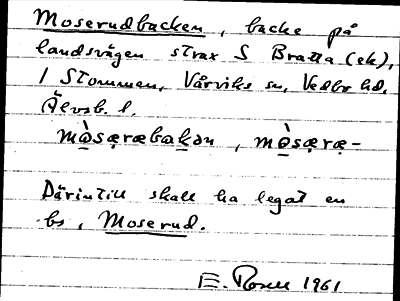 Moserudbacken, backe på
landsvägen strax S Bratta (ek),
1 Stommen, Vårviks sn, Vedbo hd,
Älvsb. l.
Därintill skall ha legat en
bs, Moserud.
E. Rosell 1961